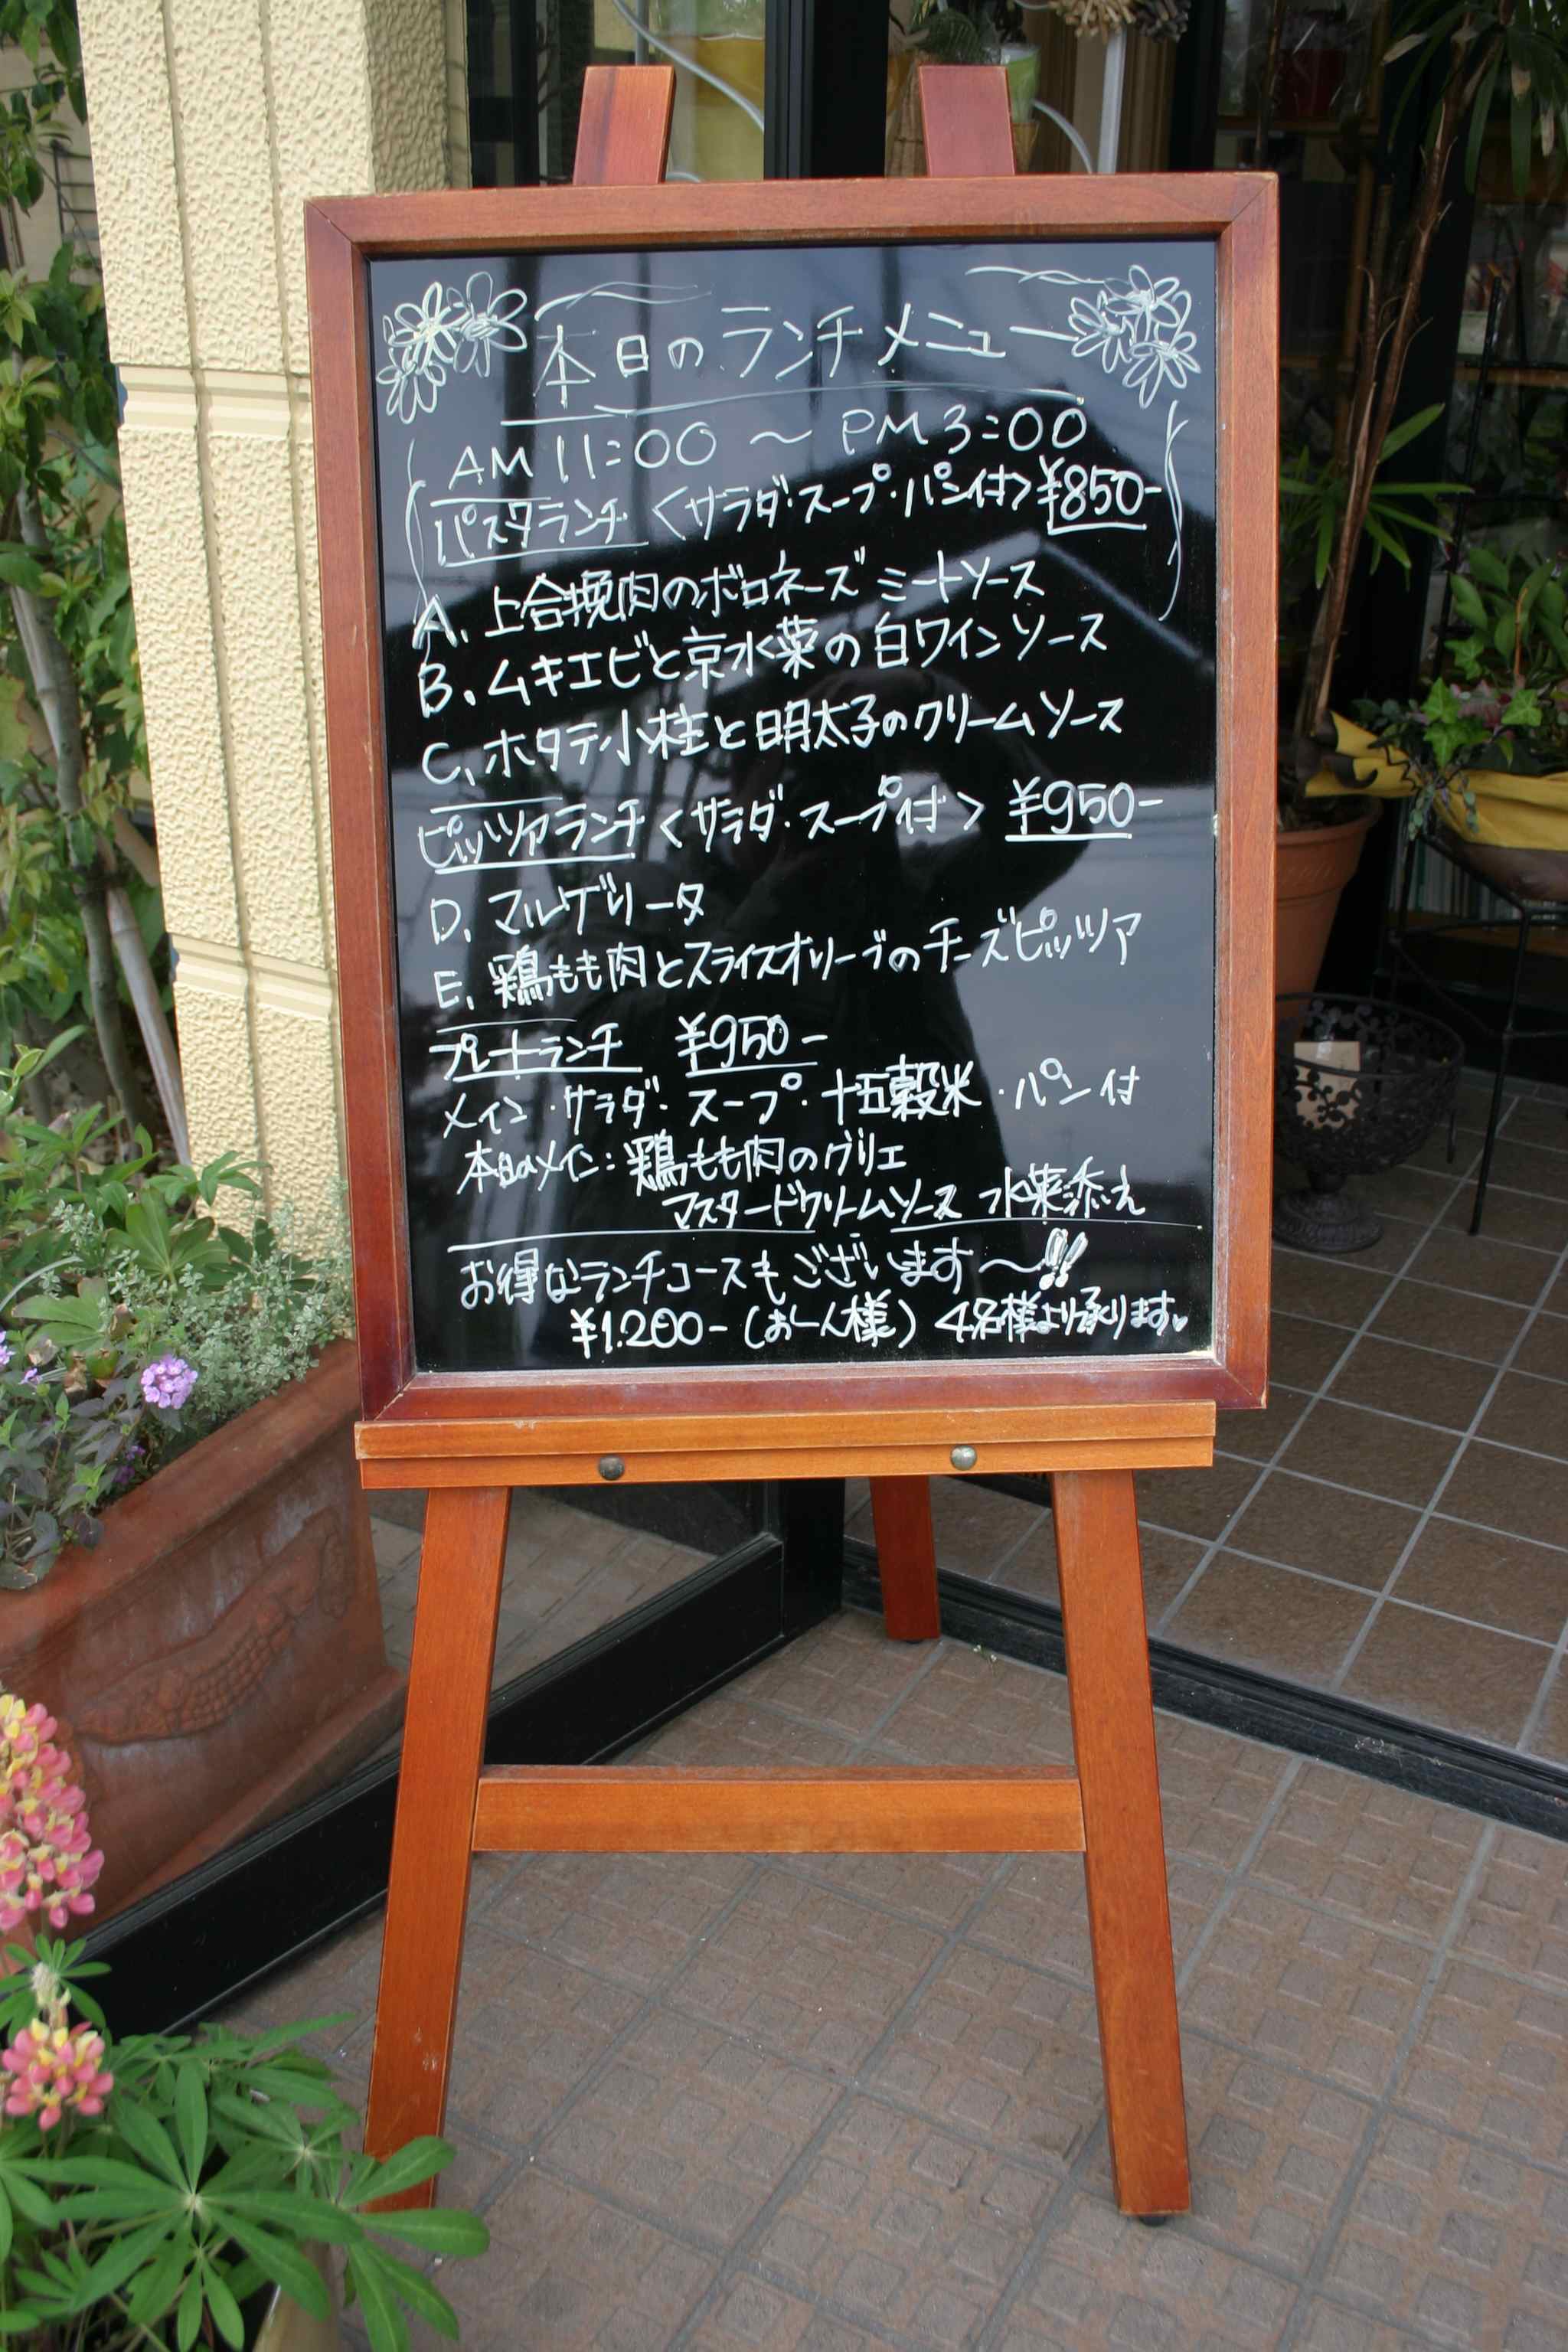 本日のランチメニュー
AM 11:00 〜 PM 3:00
パスタランチ <サラダ・スープ・パン付> ¥850-
A. 上合挽肉のボロネーズ ミートソース
B. ムキエビと京水菜の白ワインソース
C. ホタテ小柱と明太子のクリームソース
ピッツァランチ <サラダ・スープ付> ¥950-
D. マルゲリータ
E. 鶏もも肉とスライスオリーブのチーズピッツァ
プレートランチ ¥950-
メイン・サラダ・スープ・十五穀米・パン付
本日のメイン:鶏もも肉のグリエ
マスタードクリームソース 水菜添え
お得なランチコースもございます〜!!
¥1.200-(お一人様) 4名様より承ります♥